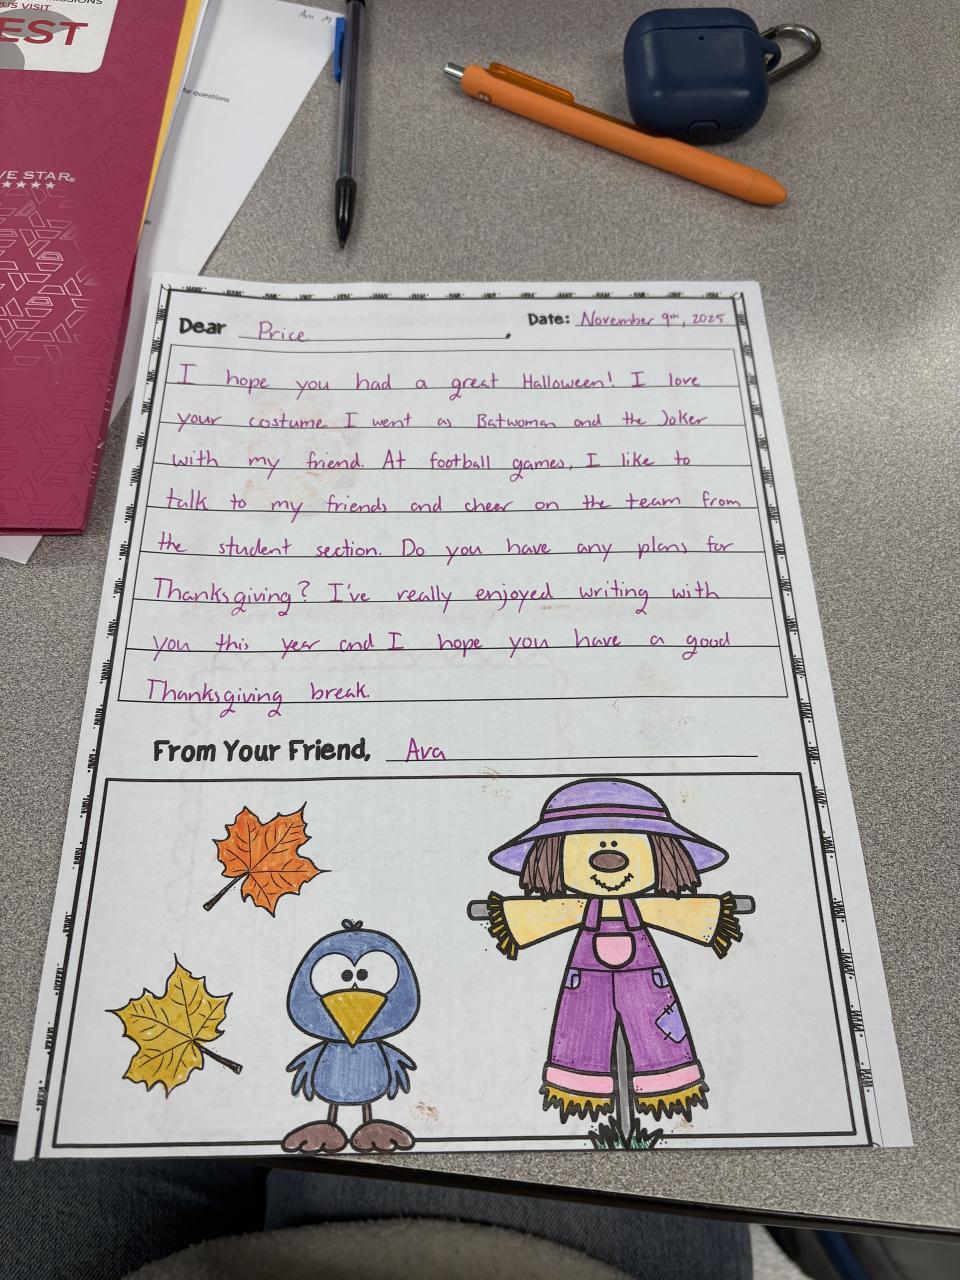 US VISIT
EST
VE STAR®
Ava M
he questions
Dear Price,
Date: November 9th, 2025
I hope you had a great Halloween! I love
your costume. I went as Batwoman and the Joker
with my friend. At football games, I like to
talk to my friends and cheer on the team from
the student section. Do you have any plans for
Thanksgiving? I've really enjoyed writing with
you this year and I hope you have a good
Thanksgiving break.
From Your Friend, Ava